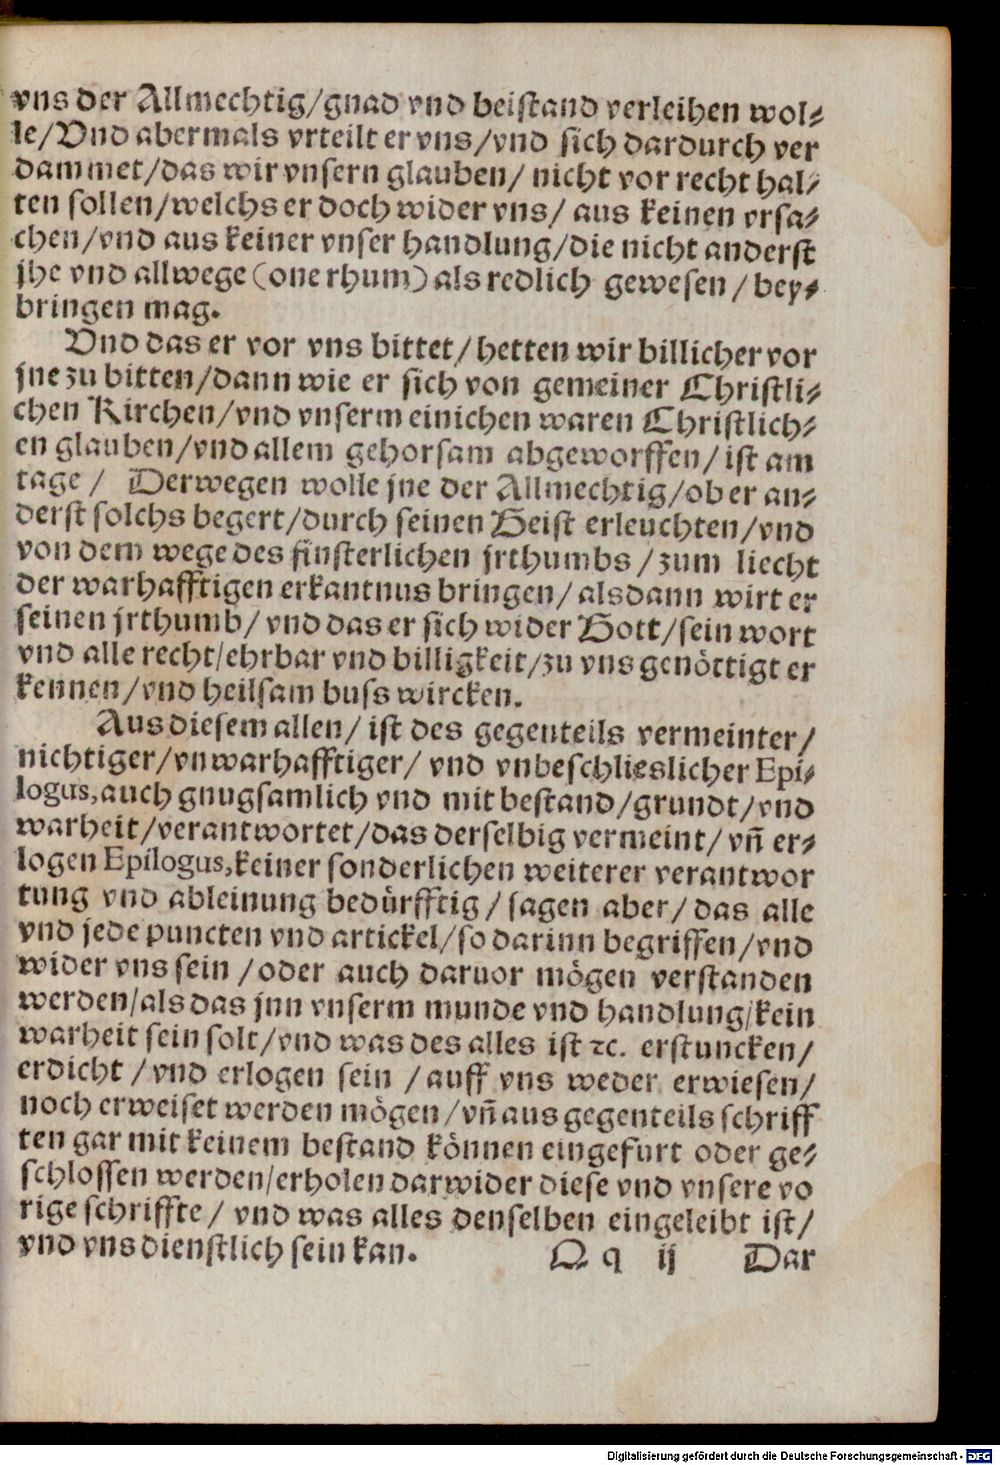 vns der Allmechtig/gnad vnd beistand verleihen wol⸗
le/Vnd abermals vrteilt er vns/vnd sich dardurch ver
dammet/das wir vnsern glauben/ nicht vor recht hal⸗
ten sollen/welchs er doch wider vns/ aus keinen vrsa⸗
chen/vnd aus keiner vnser handlung/die nicht anderst
jhe vnd allwege (one rhum) als redlich gewesen / bey⸗
bringen mag.
Vnd das er vor vns bittet/ hetten wir billicher vor
jne zu bitten/dann wie er sich von gemeiner Christli⸗
chen Kirchen/vnd vnserm einichen waren Christlich⸗
en glauben/vnd allem gehorsam abgeworffen/ ist am
tage / Derwegen wolle jne der Allmechtig/ob er an⸗
derst solchs begert/durch seinen Geist erleuchten/vnd
von dem wege des finsterlichen jrthumbs / zum liecht
der warhafftigen erkantnus bringen/ alsdann wirt er
seinen jrthumb/ vnd das er sich wider Gott/sein wort
vnd alle recht/ehrbar vnd billigkeit/zu vns genöttigt er
kennen/vnd heilsam buss wircken.
Aus diesem allen/ ist des gegenteils vermeinter/
nichtiger/vnwarhafftiger/ vnd vnbeschlieslicher Epi⸗
logus,auch gnugsamlich vnd mit bestand/grundt/vnd
warheit/verantwortet/das derselbig vermeint/ vñ er⸗
logen Epilogus,keiner sonderlichen weiterer verantwor
tung vnd ableinung bedürfftig / sagen aber/ das alle
vnd jede puncten vnd artickel/so darinn begriffen/vnd
wider vns sein /oder auch daruor mögen verstanden
werden/als das jnn vnserm munde vnd handlung/kein
warheit sein solt/vnd was des alles ist ꝛc. erstuncken/
erdicht /vnd erlogen sein /auff vns weder erwiesen/
noch erweiset werden mögen/vñ aus gegenteils schriff
ten gar mit keinem bestand können eingefurt oder ge⸗
schlossen werden/erholen darwider diese vnd vnsere vo
rige schriffte/ vnd was alles denselben eingeleibt ist/
vnd vns dienstlich sein kan. Q q ij Dar
Digitalisierung gefördert durch die Deutsche Forschungsgemeinschaft - DFG